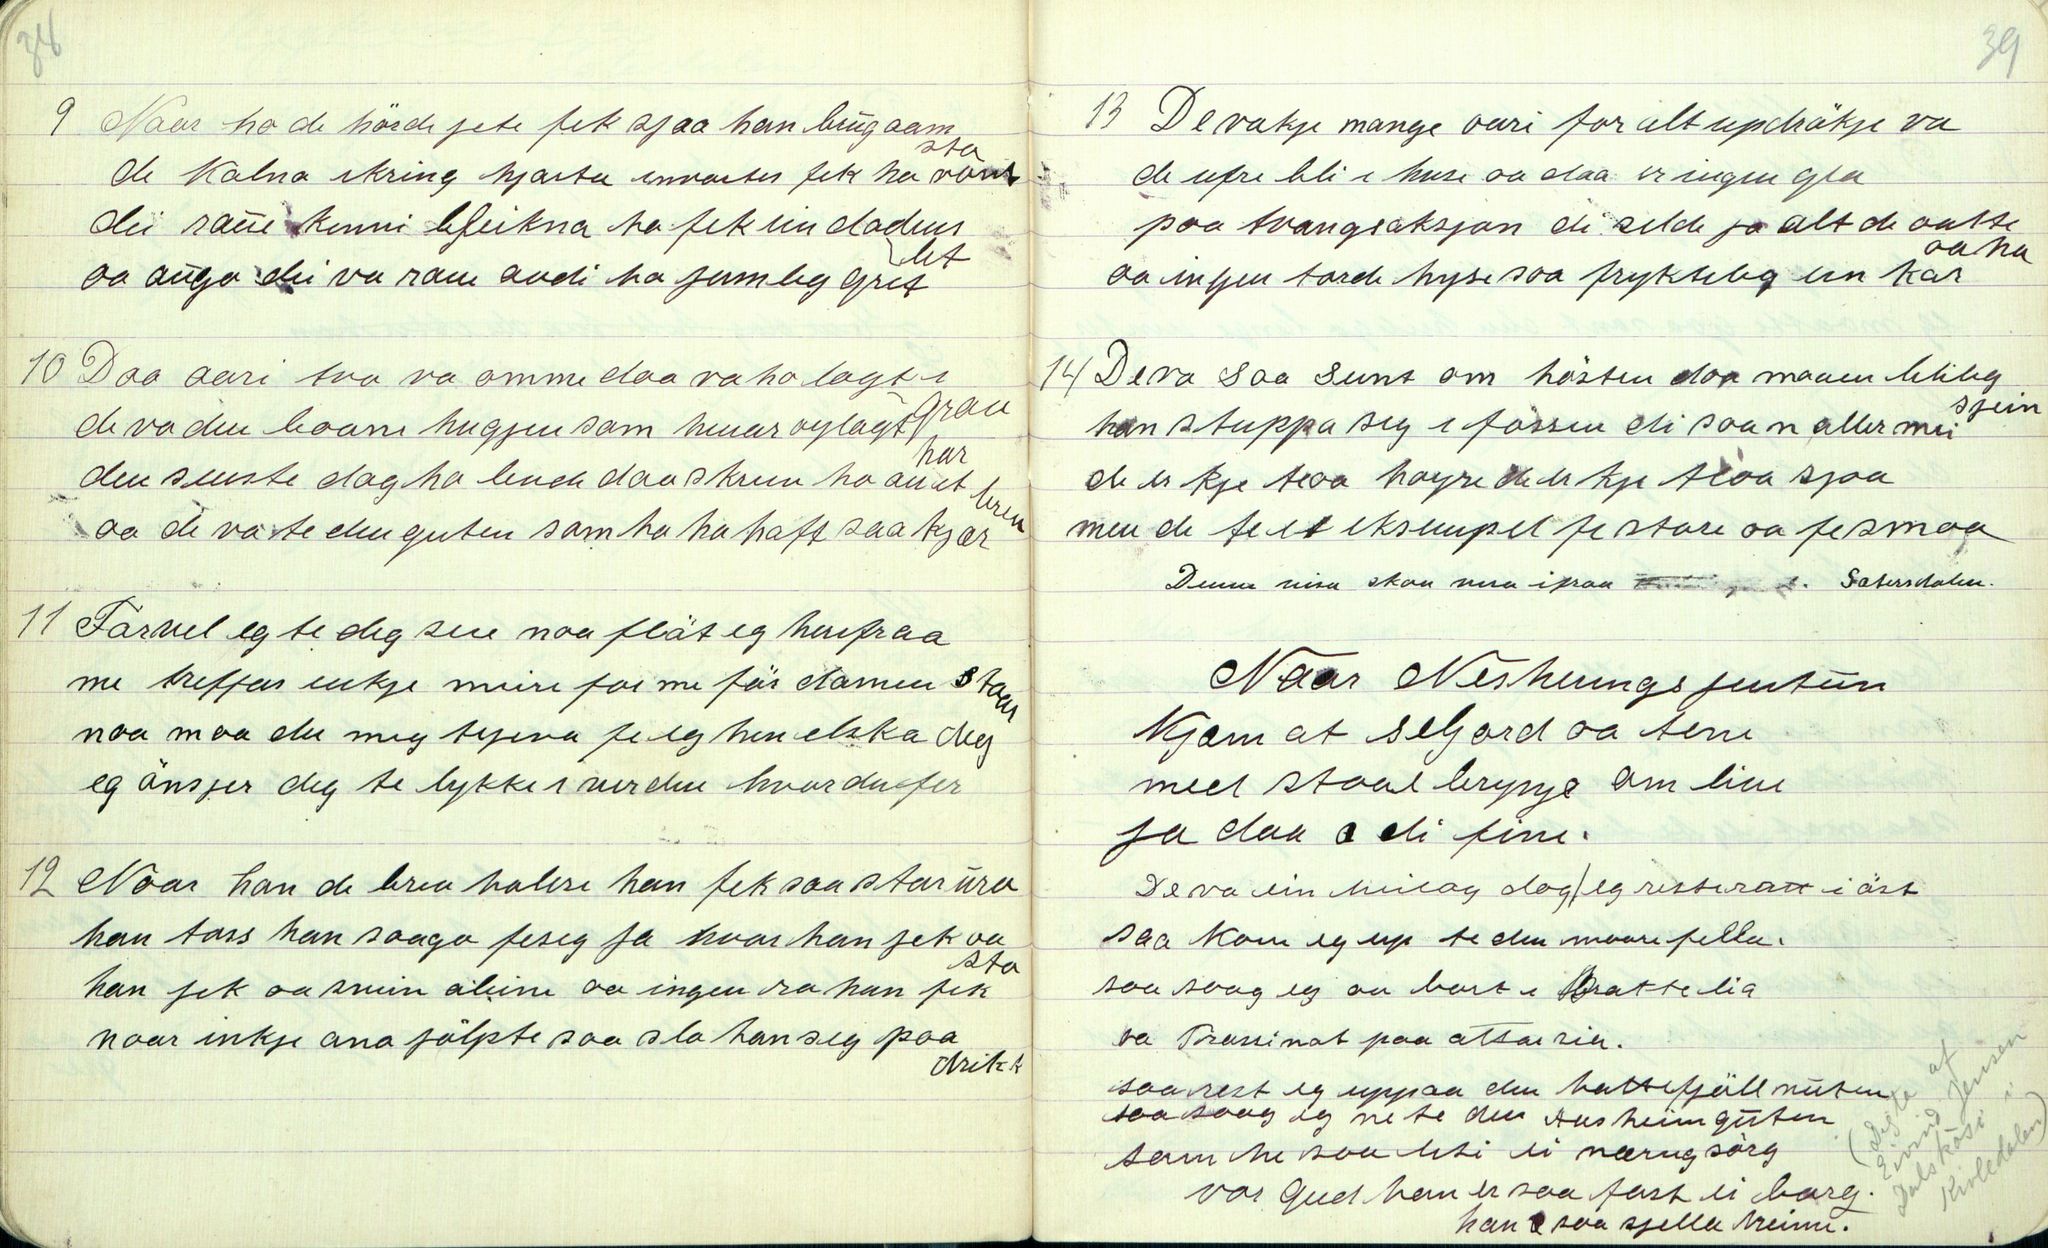 38
9 Naar ho de hörde jete fek sjaa han bleug aam
de kalna ikring hjarta invortes fek ho vont
sta
dei raue kinni bleikna ho fek ein dadens
let
oa augo dei va raue aodi ho jamleg gret
10 Daa aari tvo va omme daa va ho lagt i
grav
de va den boare hugjen som henar öylagt
har
den seinste dag ho levde daa skreiv ho ait et
brev
oa de va te den guten som ho ha haft saa kjær
11 Farvel eg te deg seie naa flöt eg henfraa
me treffas inkje meire for me för domen staar
naa maa du meg tejeva fe eg hev elska deg
eg önsjer deg te lykke i verden hvor du fer
12 Naar han de brev halere han fek saa stor uro
han tass han saaga fe seg ja hvor han jek oa
sto
han jek oa svein aleine oa ingen ro han fek
naar inkje ana jölpte saa slo han seg paa
drikk
39
13 De va kje mange aari for alt updrökje va
de ufre blei i huse oa daa er ingen gla
paa tvangsaksjon di selde jo alt de aatte
oa ha
oa ingen torde hyse saa frykteleg ein kar
14 De va saa seint om hösten daa maanen bleleg
sjein
han stuppa seg i fossen di saan aller mei
de er kje teaa höyre de er kje teaa sjaa
men de fe et eksempel fe store oa fe smaa
Denne visa skaa vera ifraa Setersdalen.
Naar Nesherringsjentun
kjem at Seljord oa tene
med staal brynje om live
ja daa e di fine.
De va ein heilag dag eg reste ratt i öst
saa kom eg up te den maarefella.
saa saag eg oa bort i Brattelia
va Prassinat paa attae ria.
saa rest eg uppaa den hattefjöll nuten
saa saag eg ne te den Aasheimguten
som he saa lesi ei nærugsörg
vor Gud han er saa fast ei borg.
han e saa sjella heime.
(Digta af
Eivind Jensen
Dalsköst i
Kivledalen)